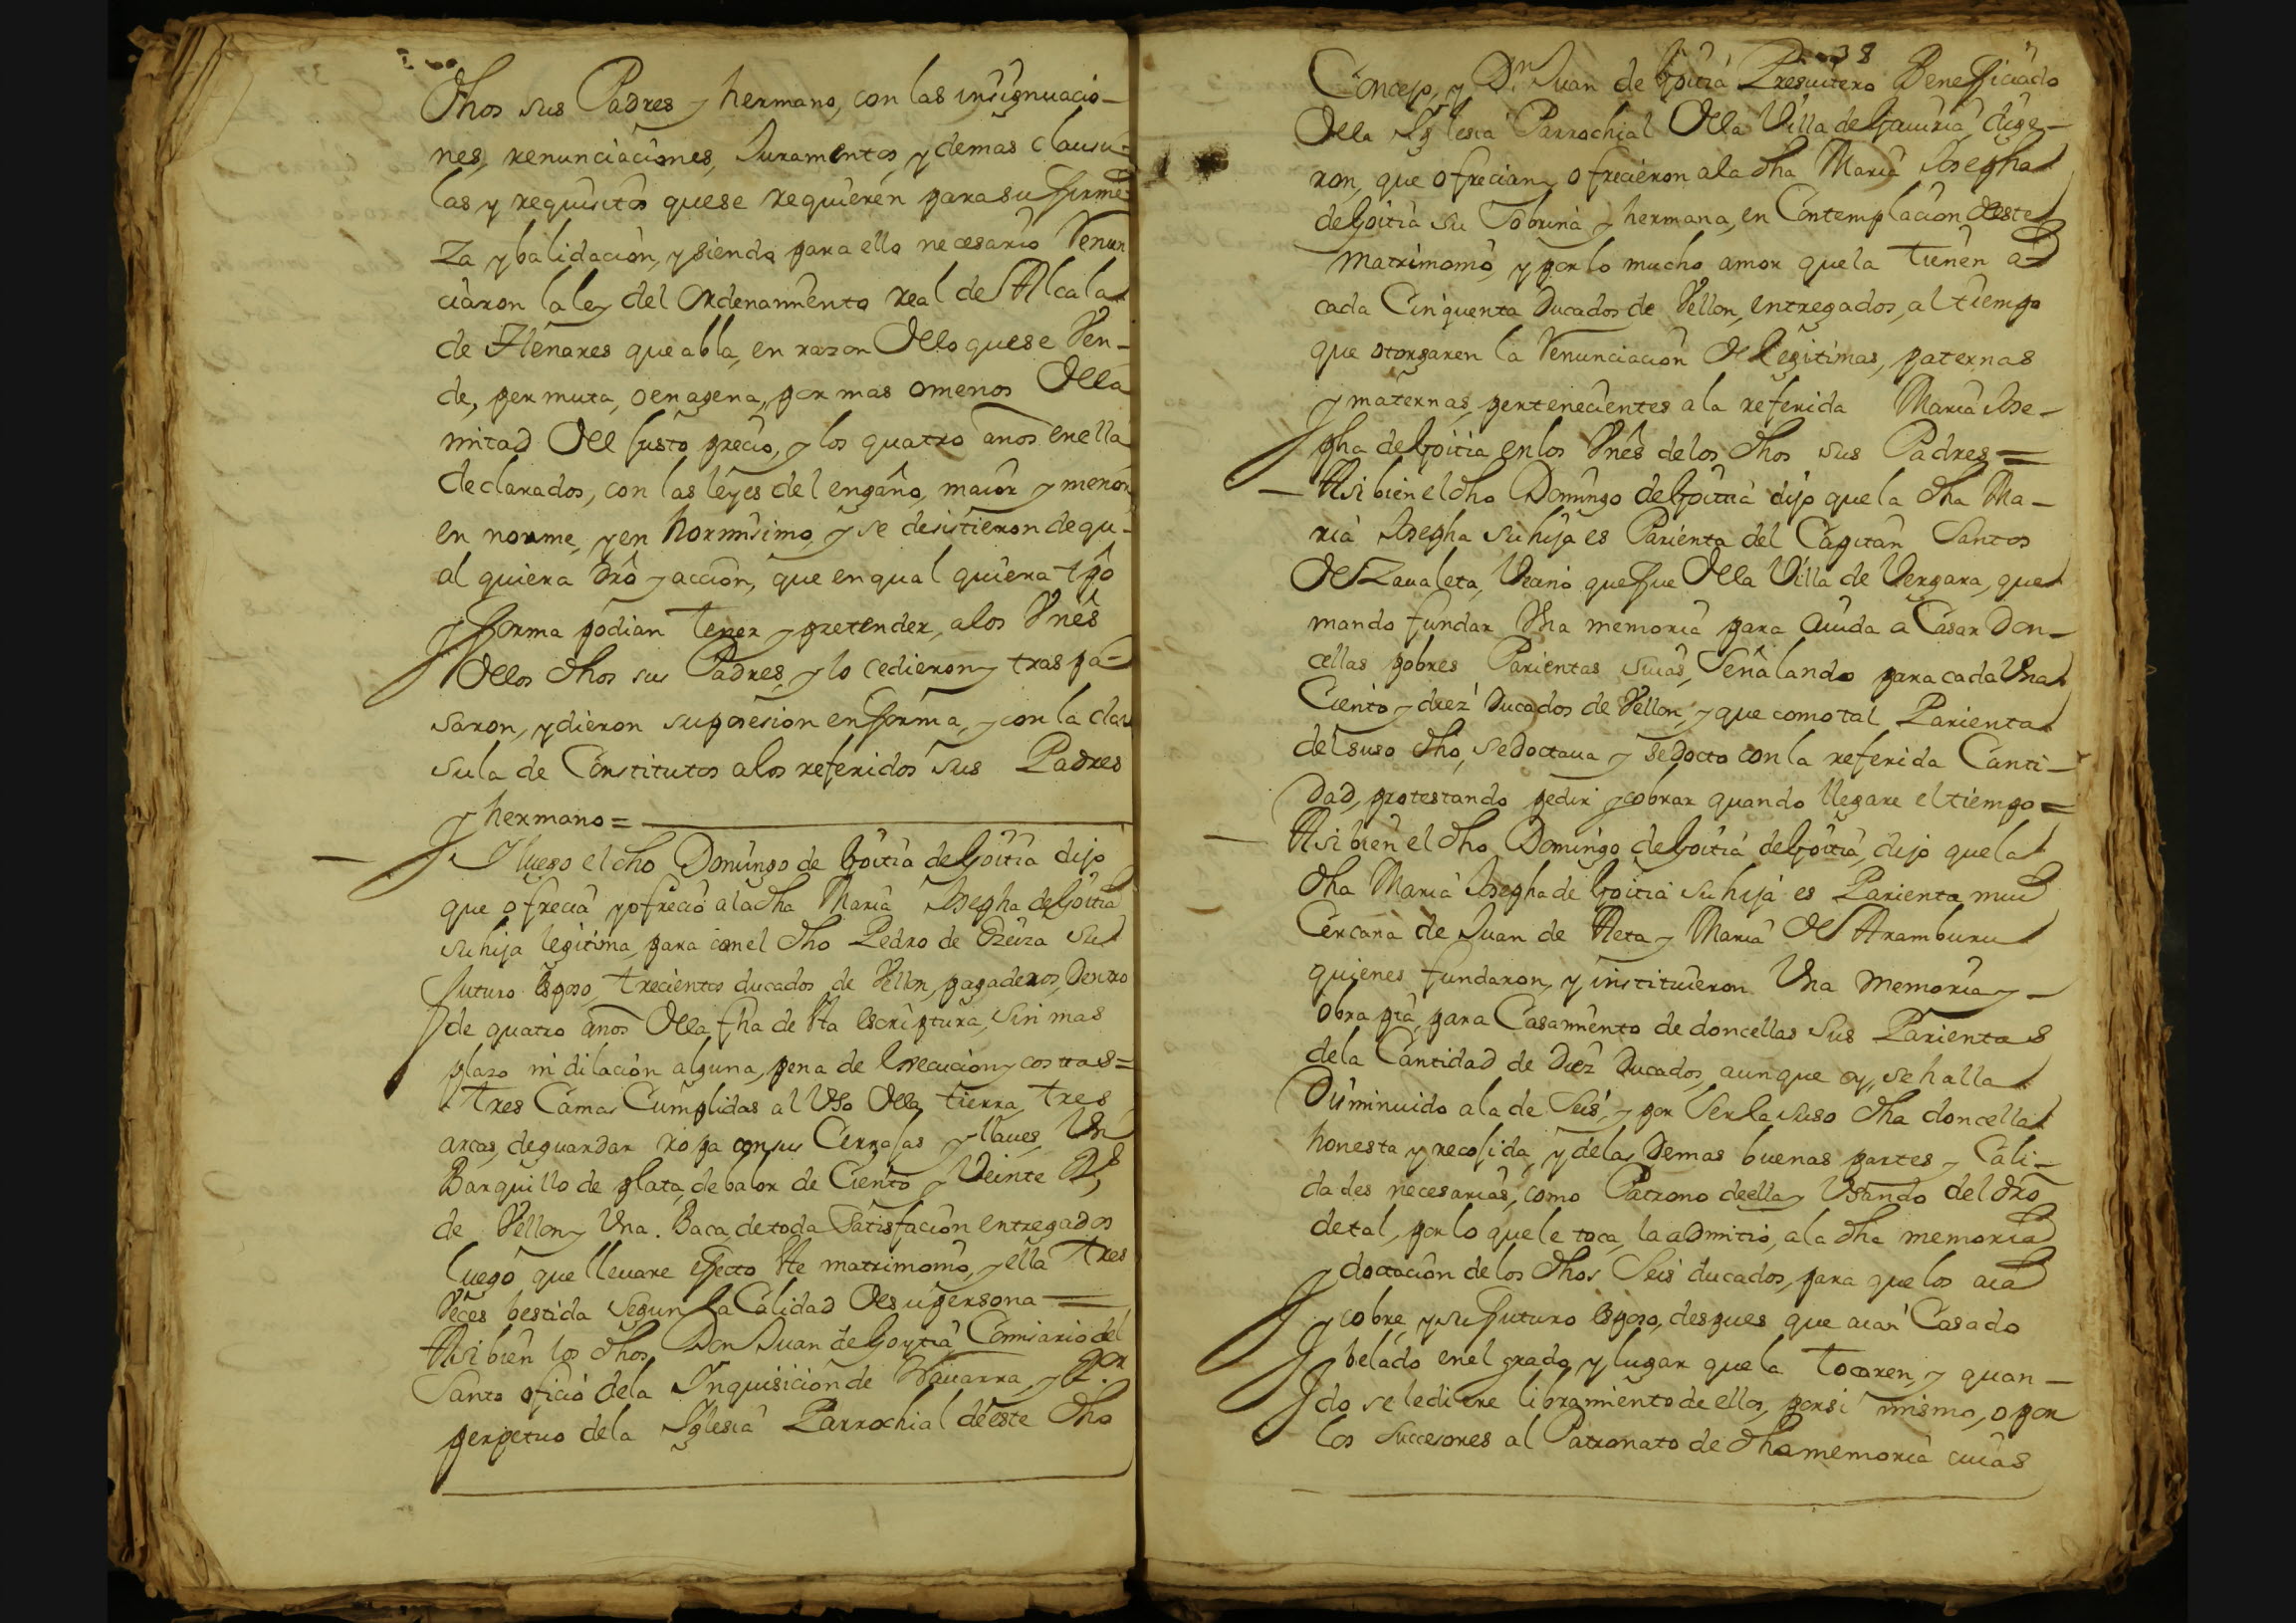 dhos sus Padres y hermano, con las insignuacio-
nes, renunciaciones, Juramentos, y demas clausu-
las y requisitos que se requieren para su firme-
za y balidacion, y siendo para ello necesario Renun
ciaron la ley del Ordenamiento real de Alcala
de Henares que abla, en razon dello que se Ven-
de, permuta, o enagena, por mas o menos della
mitad del justo precio, y los quatro años en ella
declarados, con las leyes del engaño, maior y menor,
en norme, y en normisimo, y se desistieron de qu-
al quiera dro y accion, que en qual quiera tpo
y forma podian tener y pretender, a los Vnes
dellos dhos sus Padres, y lo cedieron y traspa-
saron, y dieron su posesion en forma, y con la clau
sula de Constituto a los referidos sus Padres
y hermano =
Y luego el dho Domingo de Goitia de Goitia dijo
que ofrecia y ofrecio a la dha Maria Josepha de Goitia
su hija legitima, para con el dho Pedro de Ezeiza su
futuro esposo, trecientos ducados de Vellon, pagaderos, Dentro
de quatro años della fha de sta escriptura, sin mas
plazo ni dilacion alguna, pena de execucion y costas =
tres Camas Cumplidas al Uso della tierra, tres
arcas de guardar ropa con sus Cerrajas y llaues, Un
Barquillo de plata, de balor de Ciento y Veinte Rs
de Vellon y Una Baca, de toda Satisfacion entregados
luego que lleuare efecto ste matrimonio, y ella tres
Veces bestida segun La Calidad de su persona =
Asi bien los dhos Don Juan de Goytia Comisario del
Santo oficio dela Inquisicion de Nauarra, y Ror
perpetuo dela Iglesia Parrochial de este dho
38
Concejo, y Dn Juan de Goitia Presuitero Beneficiado
della Iglesia Parrochial della Villa de Gauiria, dije-
ron, que ofrecian y ofrecieron a la dha Maria Josepha
de Goitia su Sobrina y hermana, en Contemplacion deste
Matrimonio, y por lo mucho amor que la tienen a
cada Cinquenta Ducados de Vellon, entregados, al tiempo
que otorgaren la Renunciacion de legitimas, paternas
y maternas, pertenecientes a la referida Maria Jose-
pha de Goitia en los Vnes de los dhos sus Padres =
Asi bien el dho Domingo de Goitia dijo que la dha Ma-
ria Josepha su hija es Parienta del Capitan Santos
de Zaualeta, Vecino que fue della Villa de Vergara, que
mando fundar Una memoria para aiuda a Casar Don-
cellas pobres Parientas suias, Señalando para cada Una
Ciento y diez Ducados de Vellon, y que como tal Parienta
del suso dho, se doctaua y se docto con la referida Canti-
dad, protestando pedir y cobrar quando llegare el tiempo =
Asi bien el dho Domingo de Goitia de Goitia, dijo que la
dha Maria Josepha de Goitia su hija es Parienta mui
Cercana de Juan de Aeta y Maria de Aramburu
quienes fundaron, y instituieron Una Memoria y
obra pia, para Casamiento de doncellas sus Parientas
dela Cantidad de Diez Ducados, aunque oy, se halla
Disminuido a la de Seis, y por Ser la suso dha doncella
honesta y recojida, y delas Demas buenas partes y Cali-
dades necesarias, como Patrono de ella y Usando del dro
de tal, por lo que le toca, la admitio, a la dha memoria
y doctacion de los dhos Seis ducados, para que los aia
y cobre, y su futuro esposo, despues que aian Casado
y belado en el grado, y lugar que la tocaren, y quan-
do se le diere libramiento de ellos, por si mismo, o por
los Succesores al Patronato de dha memoria cuias